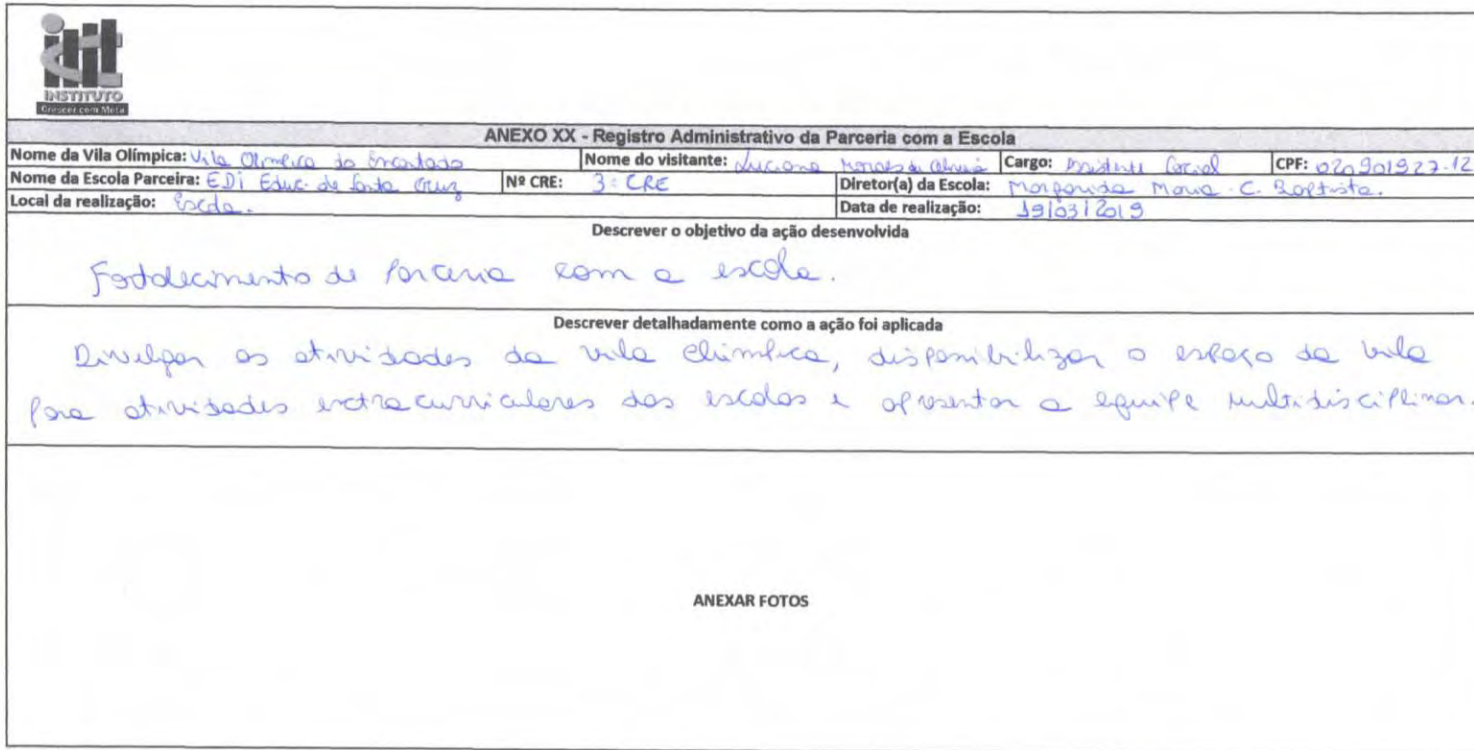 INSTITUTO
Crescer com Meta
ANEXO XX - Registro Administrativo da Parceria com a Escola
Nome da Vila Olímpica: Vila Olímpica do Encantado Nome do visitante: Luciana Moraes de Cargo: Assistente Social CPF: 020901927-12
Nome da Escola Parceira: EDi Educ. de Santa Cruz Nº CRE: 3ª CRE Diretor(a) da Escola: Margarida Maria C. Baptista.
Local da realização: Escola. Data de realização: 19/03/2019
Descrever o objetivo da ação desenvolvida
Fortalecimento de Parceria com a escola.
Descrever detalhadamente como a ação foi aplicada
Divulgar as atividades da vila Olímpica, disponibilizar o espaço da vila
para atividades extracurriculares das escolas e apresentar a equipe multidisciplinar.
ANEXAR FOTOS